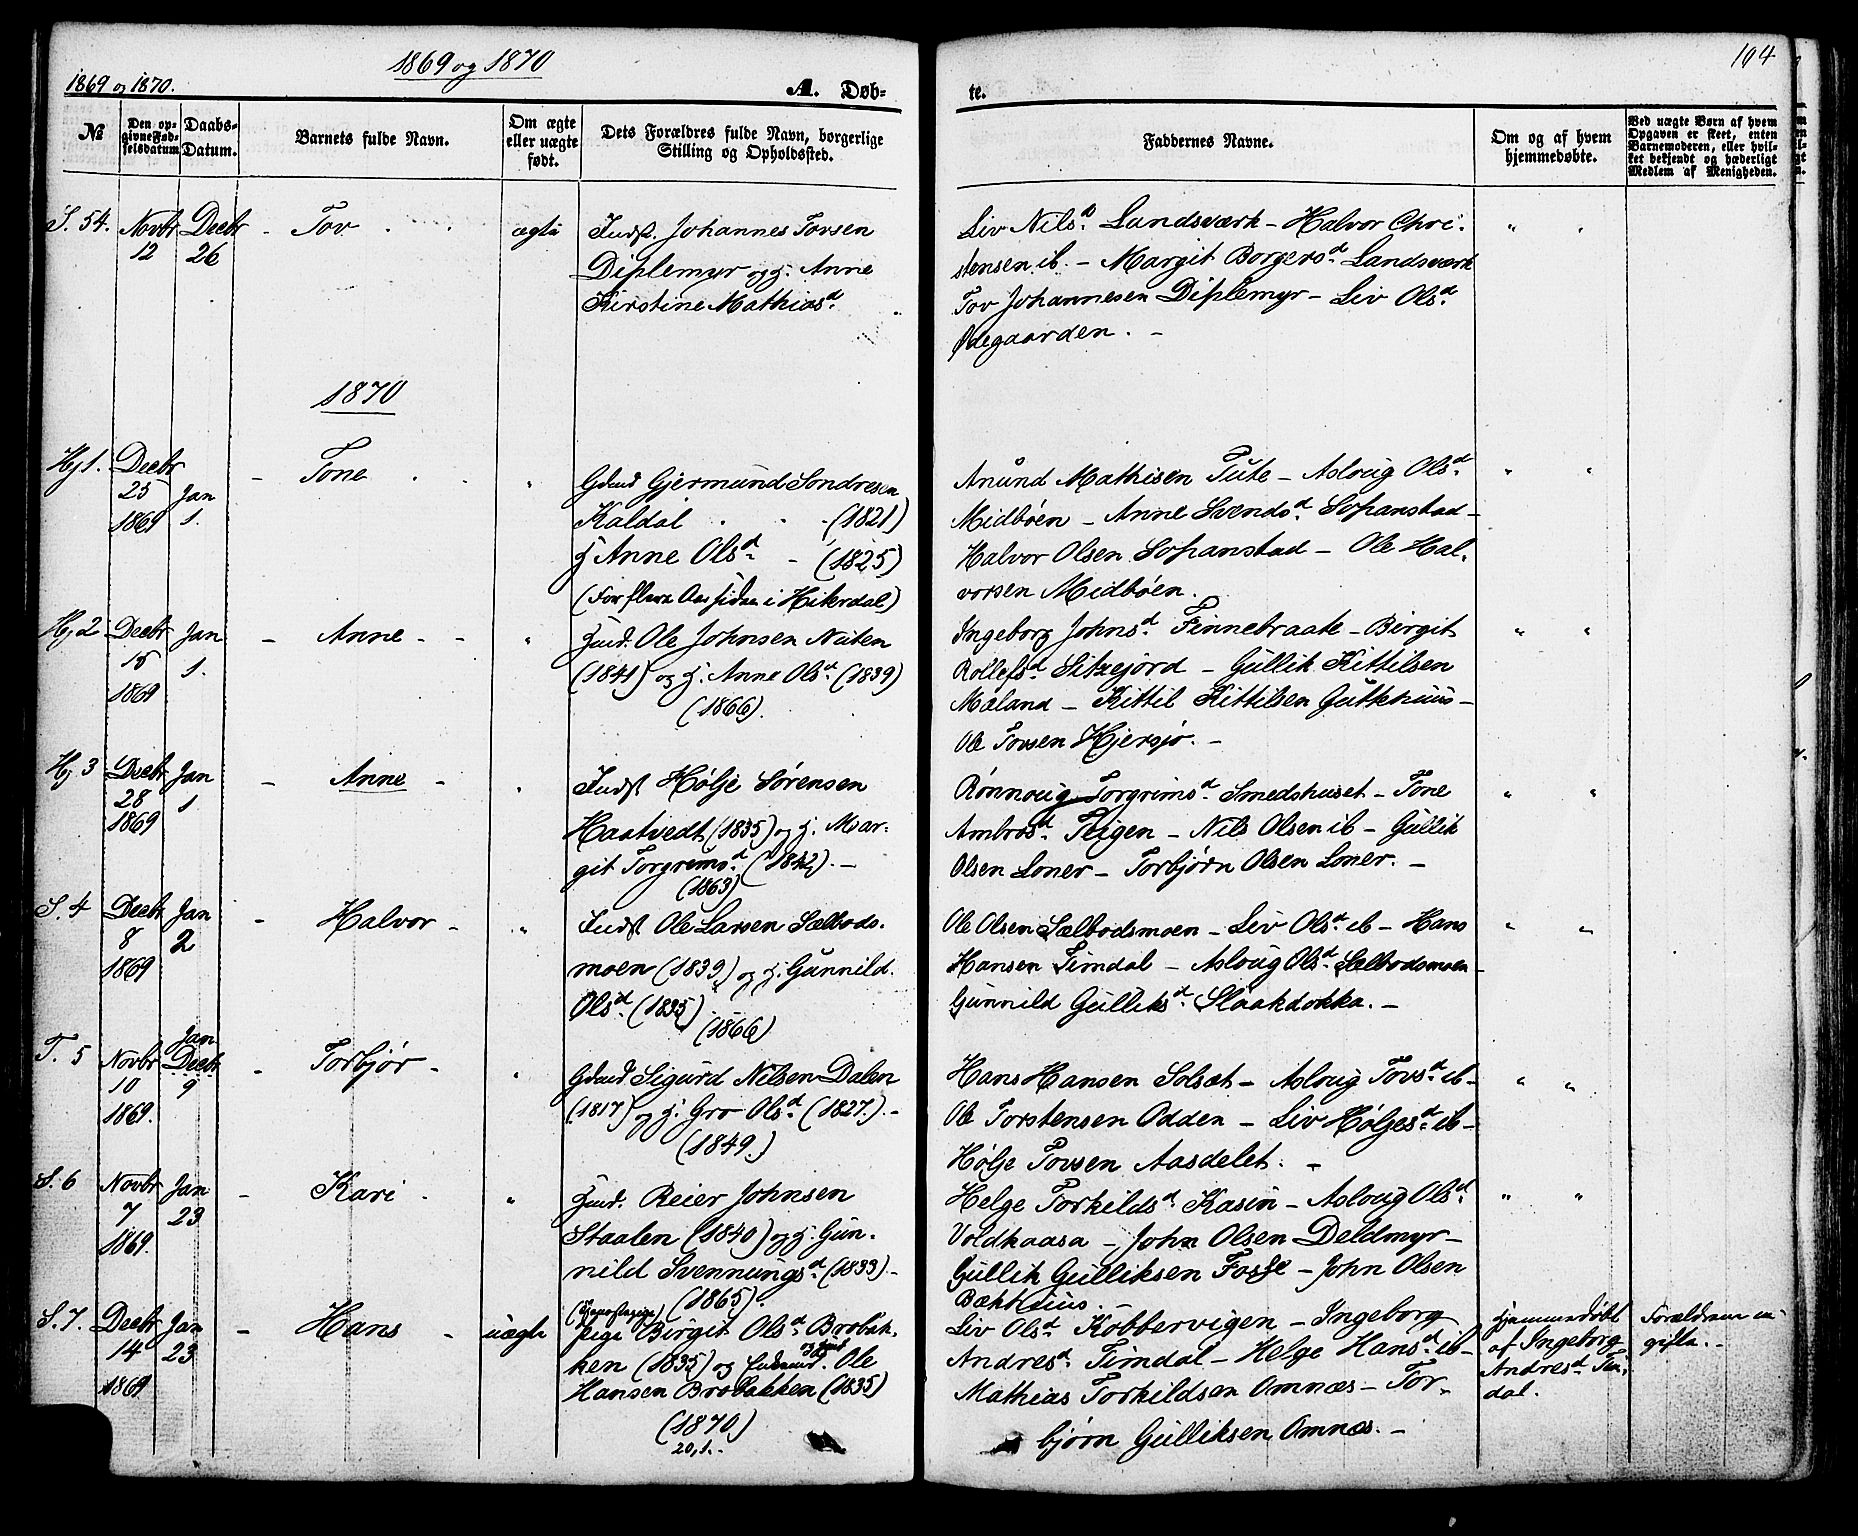 1869 og 1870
104
1869 og 1870.
A. Døb-
te.
№
Den op-
givne Fød-
selsdatum
Daabs-
Datum.
Barnets fulde Navn.
Om ægte
eller uægte
født.
Dets Forældres fulde Navn, borgerlige
Stilling og Opholdssted.
Faddernes Navne.
Om og af hvem
hjemmedøbte.
Ved uægte Børn af hvem
Opgaven er skeet, enten
Barnemoderen, eller hvil-
ket bekjendt og hæderligt
Medlem af Menigheden.
S. 54. Novbr Decbr - Tov ægte Indst. Johannes Tovsen
12 26 Diplemyr og H. Anne
Kirstine Mathiasd.
Liv Nilsd. Landsværk - Halvor Chri-
stensen ib. - Margit Borgersd. Landsværk
Tov Johannesen Diplemyr - Liv Olsd.
Ødegaarden. -
1870
Hj 1. Decbr - Tone " Gdmd Gjermund Sondresen
25 Jan Kaldal (1821)
1869 1. H Anne Olsd. - (1825)
(For flere Aar siden i Hiterdal)
Anund Mathisen Tute - Asloug Olsd.
Midbøen - Anne Svendsd. Sopanstad -
Halvor Olsen Sopanstad - Ole Hal-
vorsen Midbøen.
Hj 2 Decbr Jan - Anne - " Hmd. Ole Johnsen Nuten
15 1. (1841) og H. Anne Olsd. (1839)
1869 (1866).
Ingeborg Johnsd. Finnebraate - Birgit
Rollefsd. Sitjejord - Gullik Kittilsen
Mæland - Kittil Kittilsen Gutkhuus -
Ole Tovsen Hjersjø. -
Hj 3 Decbr Jan - Anne - " Indst Hølje Sørensen
28 1 Haatvedt (1835) og H. Mar-
1869 git Torgrimsd. (1842). -
(1863)
Rønnoug Torgrimsd. Smedshuset - Tone
Ambrosd. Teigen - Nils Olsen ib - Gullik
Olsen Loner - Torbjørn Olsen Loner. -
S. 4 Decbr Jan - Halvor - " Indst Ole Larsen Sælbods-
8 2 moen (1839) og H. Gunnild
1869 Olsd. (1835)
(1866)
Ole Olsen Sælbodsmoen - Liv Olsd. ib - Hans
Hansen Timdal - Asloug Olsd. Sælbodsmoen -
Gunnild Gulliksd. Slaakdokka. -
T. 5 Novbr Jan Decbr - Torbjør - " Gdmd Sigurd Nilsen Dalen
10 9 (1817) og H. Gro Olsd. (1827). -
1869. (1849.)
Hans Hansen Solsæt - Asloug Tovsd. ib -
Ole Torstensen Odden - Liv Høljesd. ib -
Hølje Tovsen Aasdelet. -
S. 6 Novbr Jan - Kari - " Hmd. Reier Johnsen
7 23 Staalen (1840) og H. Gun-
1869. nild Svennungsd. (1833) -
(1865).
Helge Torkildsd. Kasin - Asloug Olsd.
Voldkaasa - John Olsen Deldmyr -
Gullik Gulliksen Fosse - John Olsen
Bækkhuus. -
S. 7. Decbr Jan - Hans - uægte Pige Birgit Olsd. Brobak-
14 23 ken (1835) og Ole
1869 Hansen Brobakken (1835)
(1870)
20,1.-
Liv Olsd. Kobbervigen - Ingeborg
Andresd. Timdal - Helge Hansd. ib -
Mathias Torkildsen Omnæs - Tor-
bjørn Gulliksen Omnæs. -
Hjemmedøbt
af Ingeborg
Andresd. Tin-
dal.
Forældrene u-
gifte. -